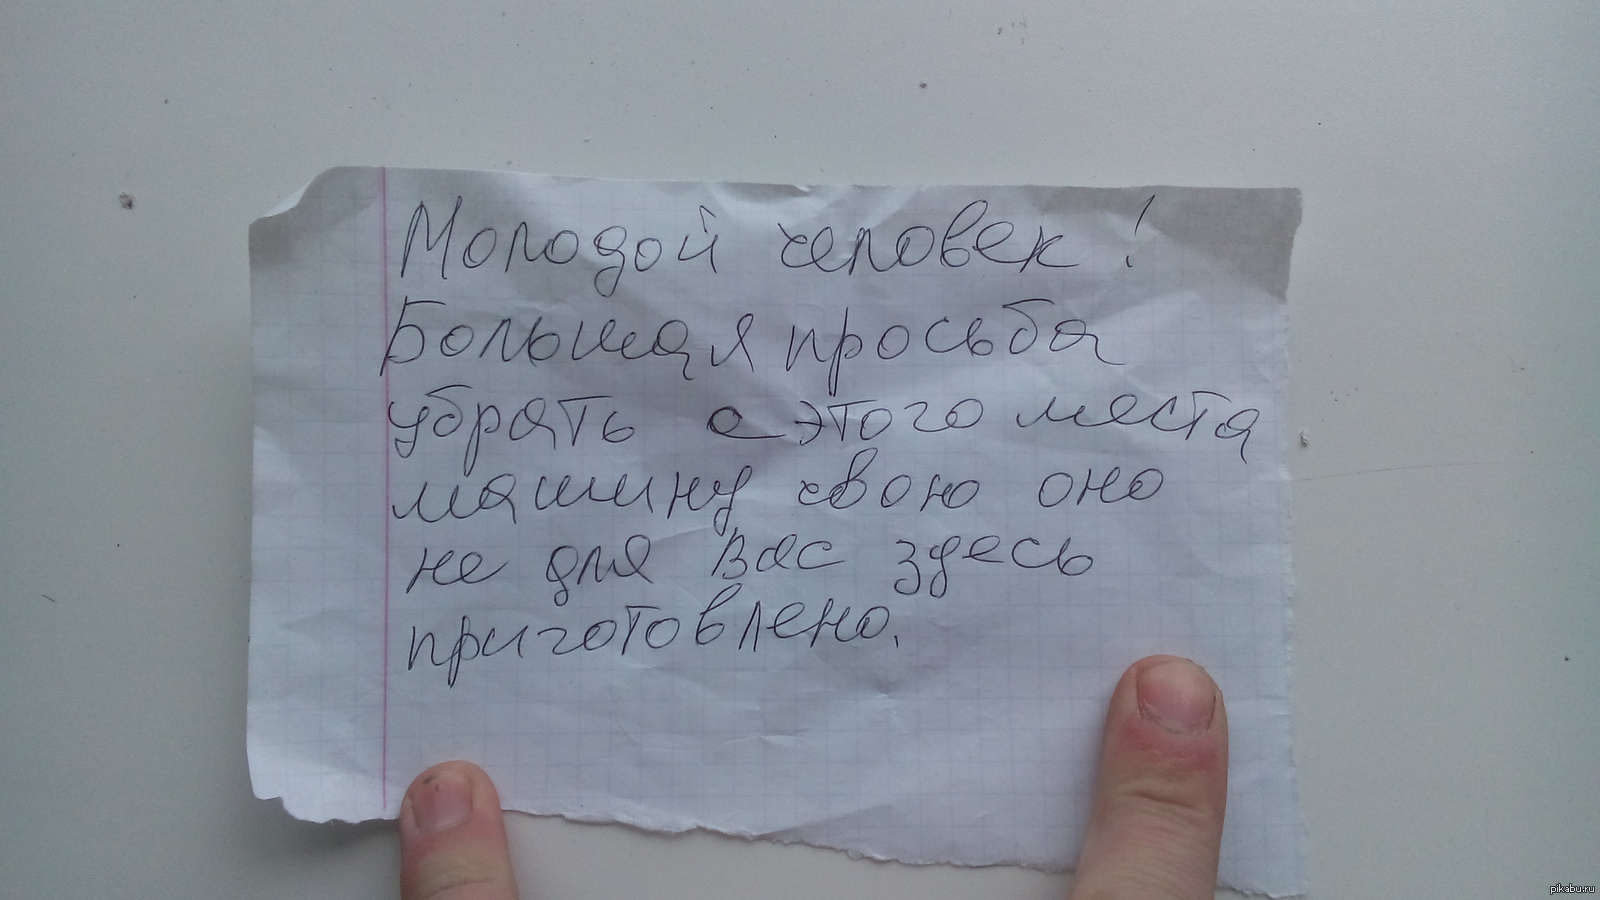 Молодой человек!
Большая просьба
убрать с этого места
машину свою оно
не для вас здесь
приготовлено.
pikabu.ru